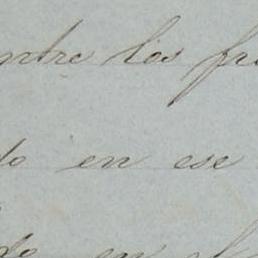 ntre los fr
do en ese
do en el